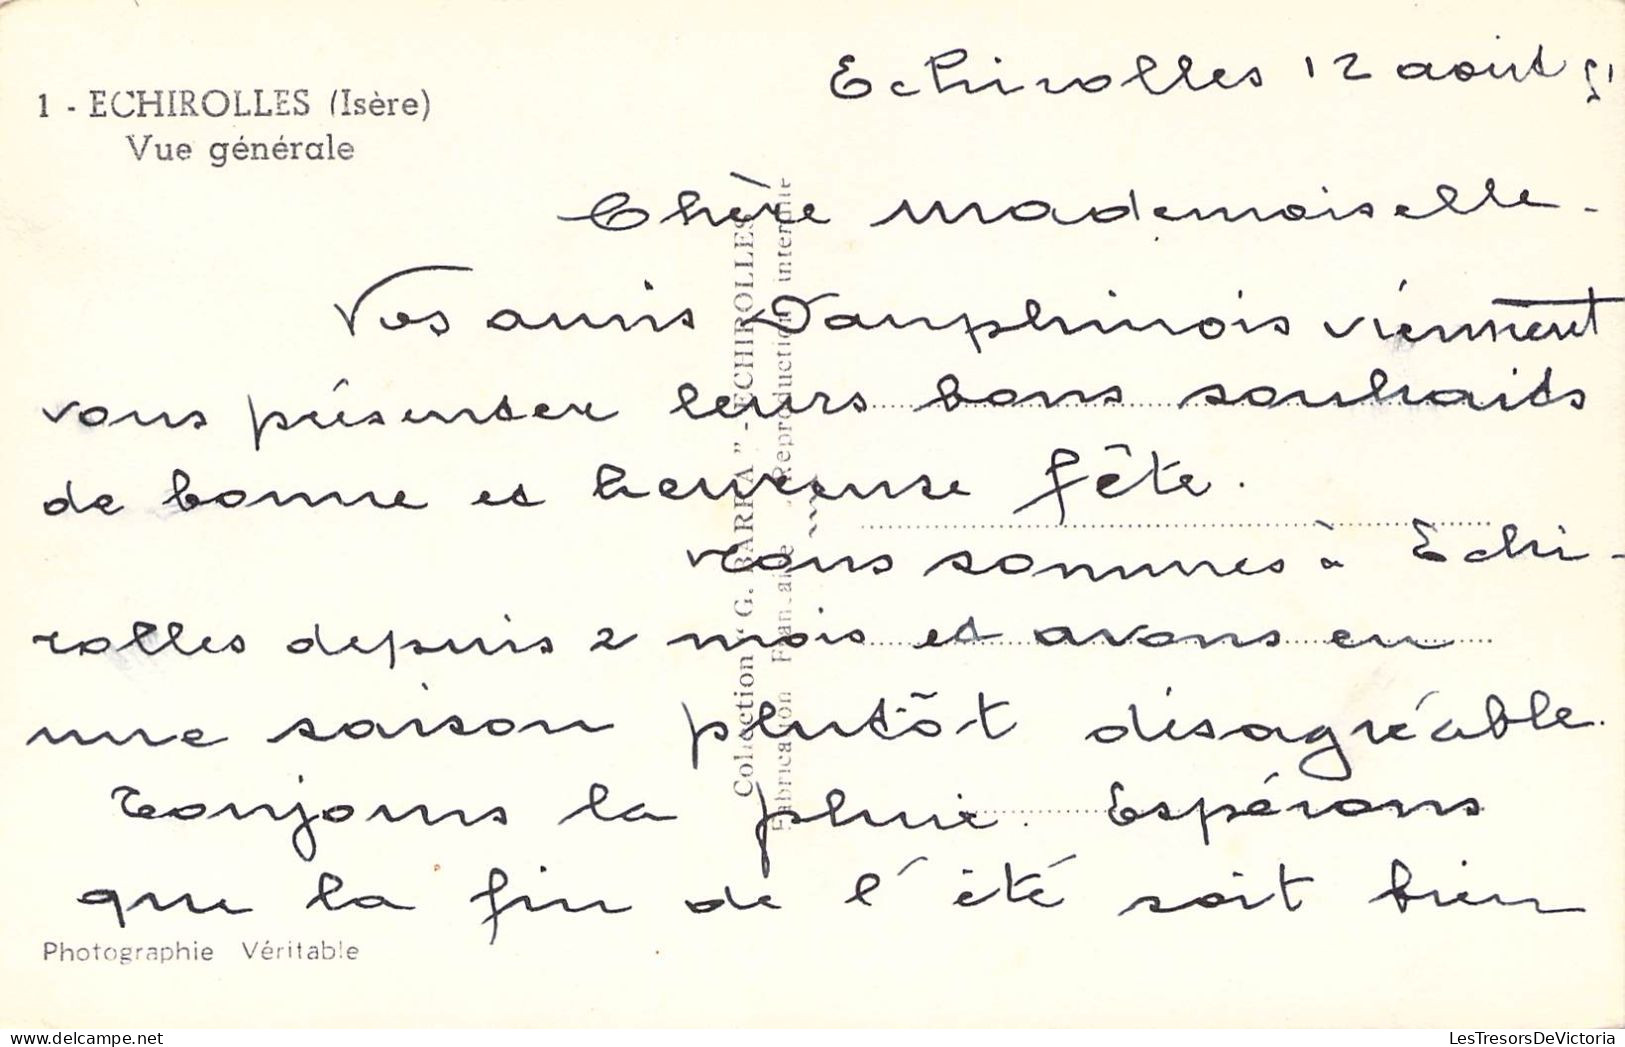 1 - ECHIROLLES (Isère)
Vue générale
Echirolles 12 août 51
Chère Mademoiselle.
Vos amis Dauphinois viennent
vous présenter leurs bons souhaits
de bonne et heureuse fête.
Nous sommes à Echi-
rolles depuis 2 mois et avons eu
une saison plutôt désagréable.
Toujours la pluie. Espérons
que la fin de l'été soit bien
Photographie Véritable
Collection "G. BARRA" - ECHIROLLES
Fabrication Française - Reproduction interdite
LesTresorsDeVictoria